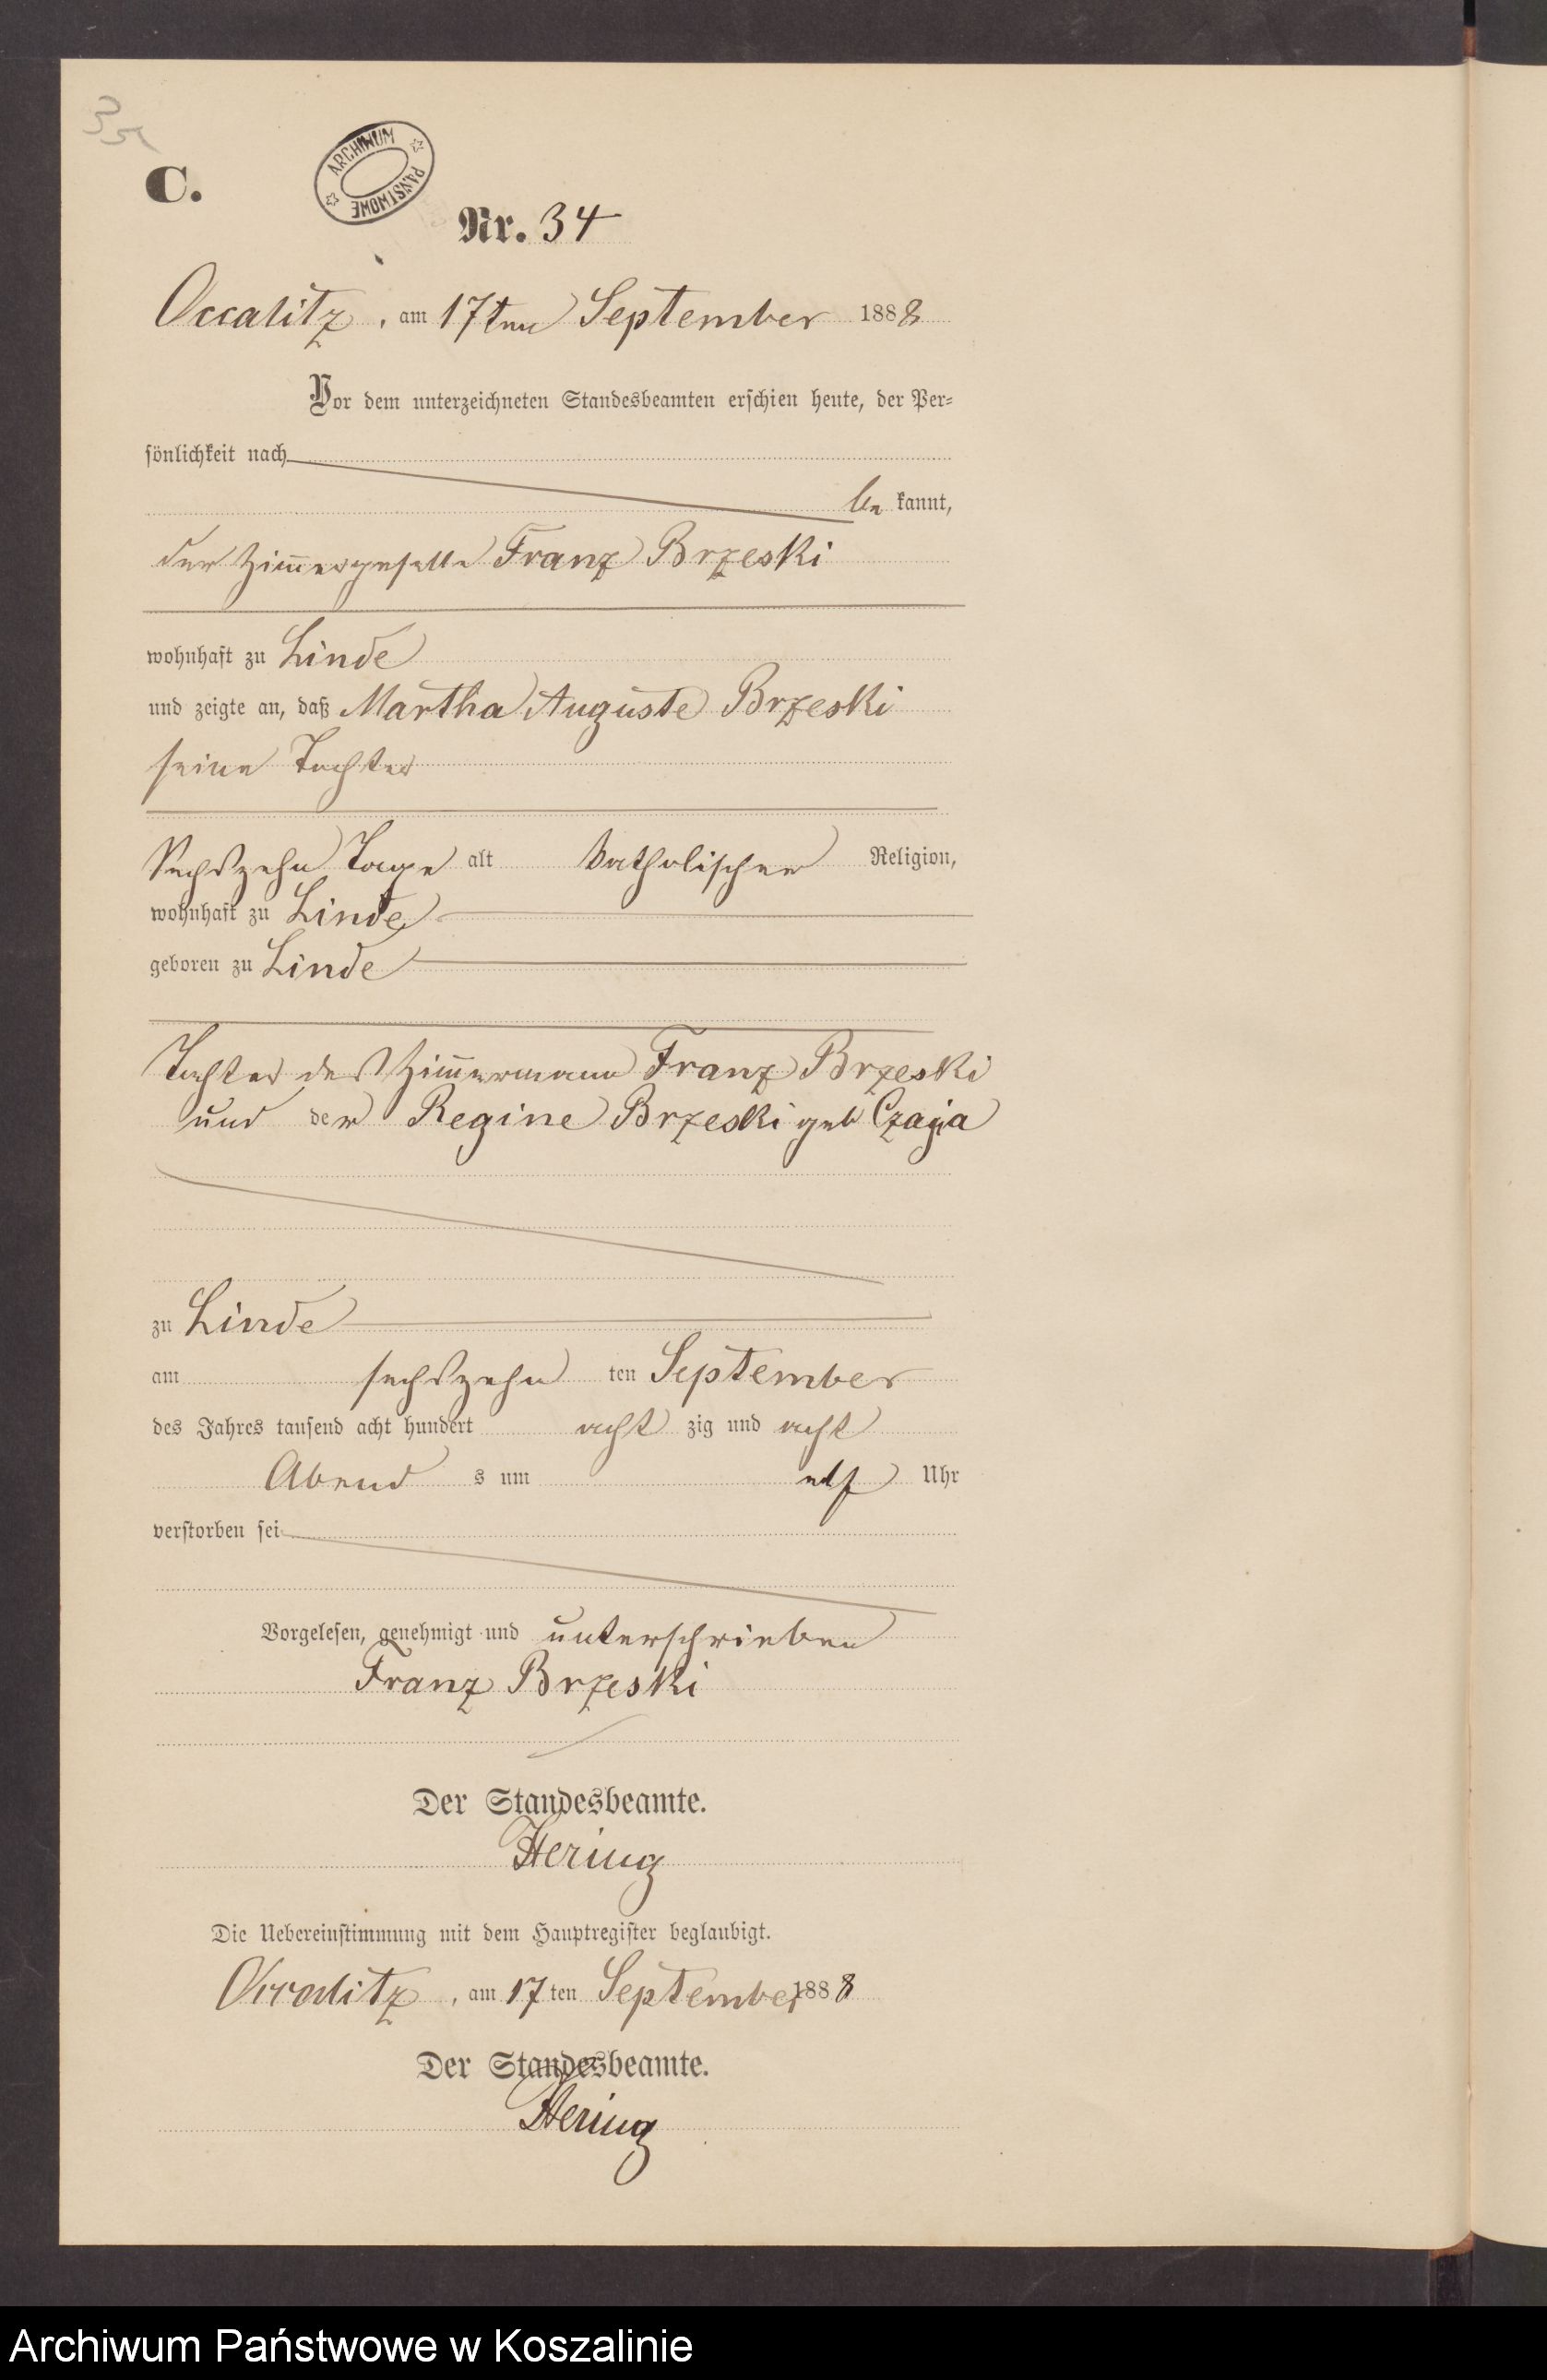 35
C.
ARCHIWUM PAŃSTWOWE
Nr. 34
Occalitz, am 17ten September 1888
Vor dem unterzeichneten Standesbeamten erschien heute, der Per-
sönlichkeit nach
be kannt,
der Zim̅ergeselle Franz Brzeski
wohnhaft zu Linde
und zeigte an, daß Martha Auguste Brzeski
seine Tochter
Sechszehn Tage alt katholischer Religion,
wohnhaft zu Linde
geboren zu Linde
Tochter des Zim̅ermann Franz Brzeski
und der Regine Brzeski geb Czaja
zu Linde
am sechszehn ten September
des Jahres tausend acht hundert acht zig und acht
Abend s um elf Uhr
verstorben sei
Vorgelesen, genehmigt und unterschrieben
Franz Brzeski
Der Standesbeamte.
Hering
Die Uebereinstimmung mit dem Hauptregister beglaubigt.
Occalitz, am 17 ten September 1888
Der Standesbeamte.
Hering
Archiwum Państwowe w Koszalinie